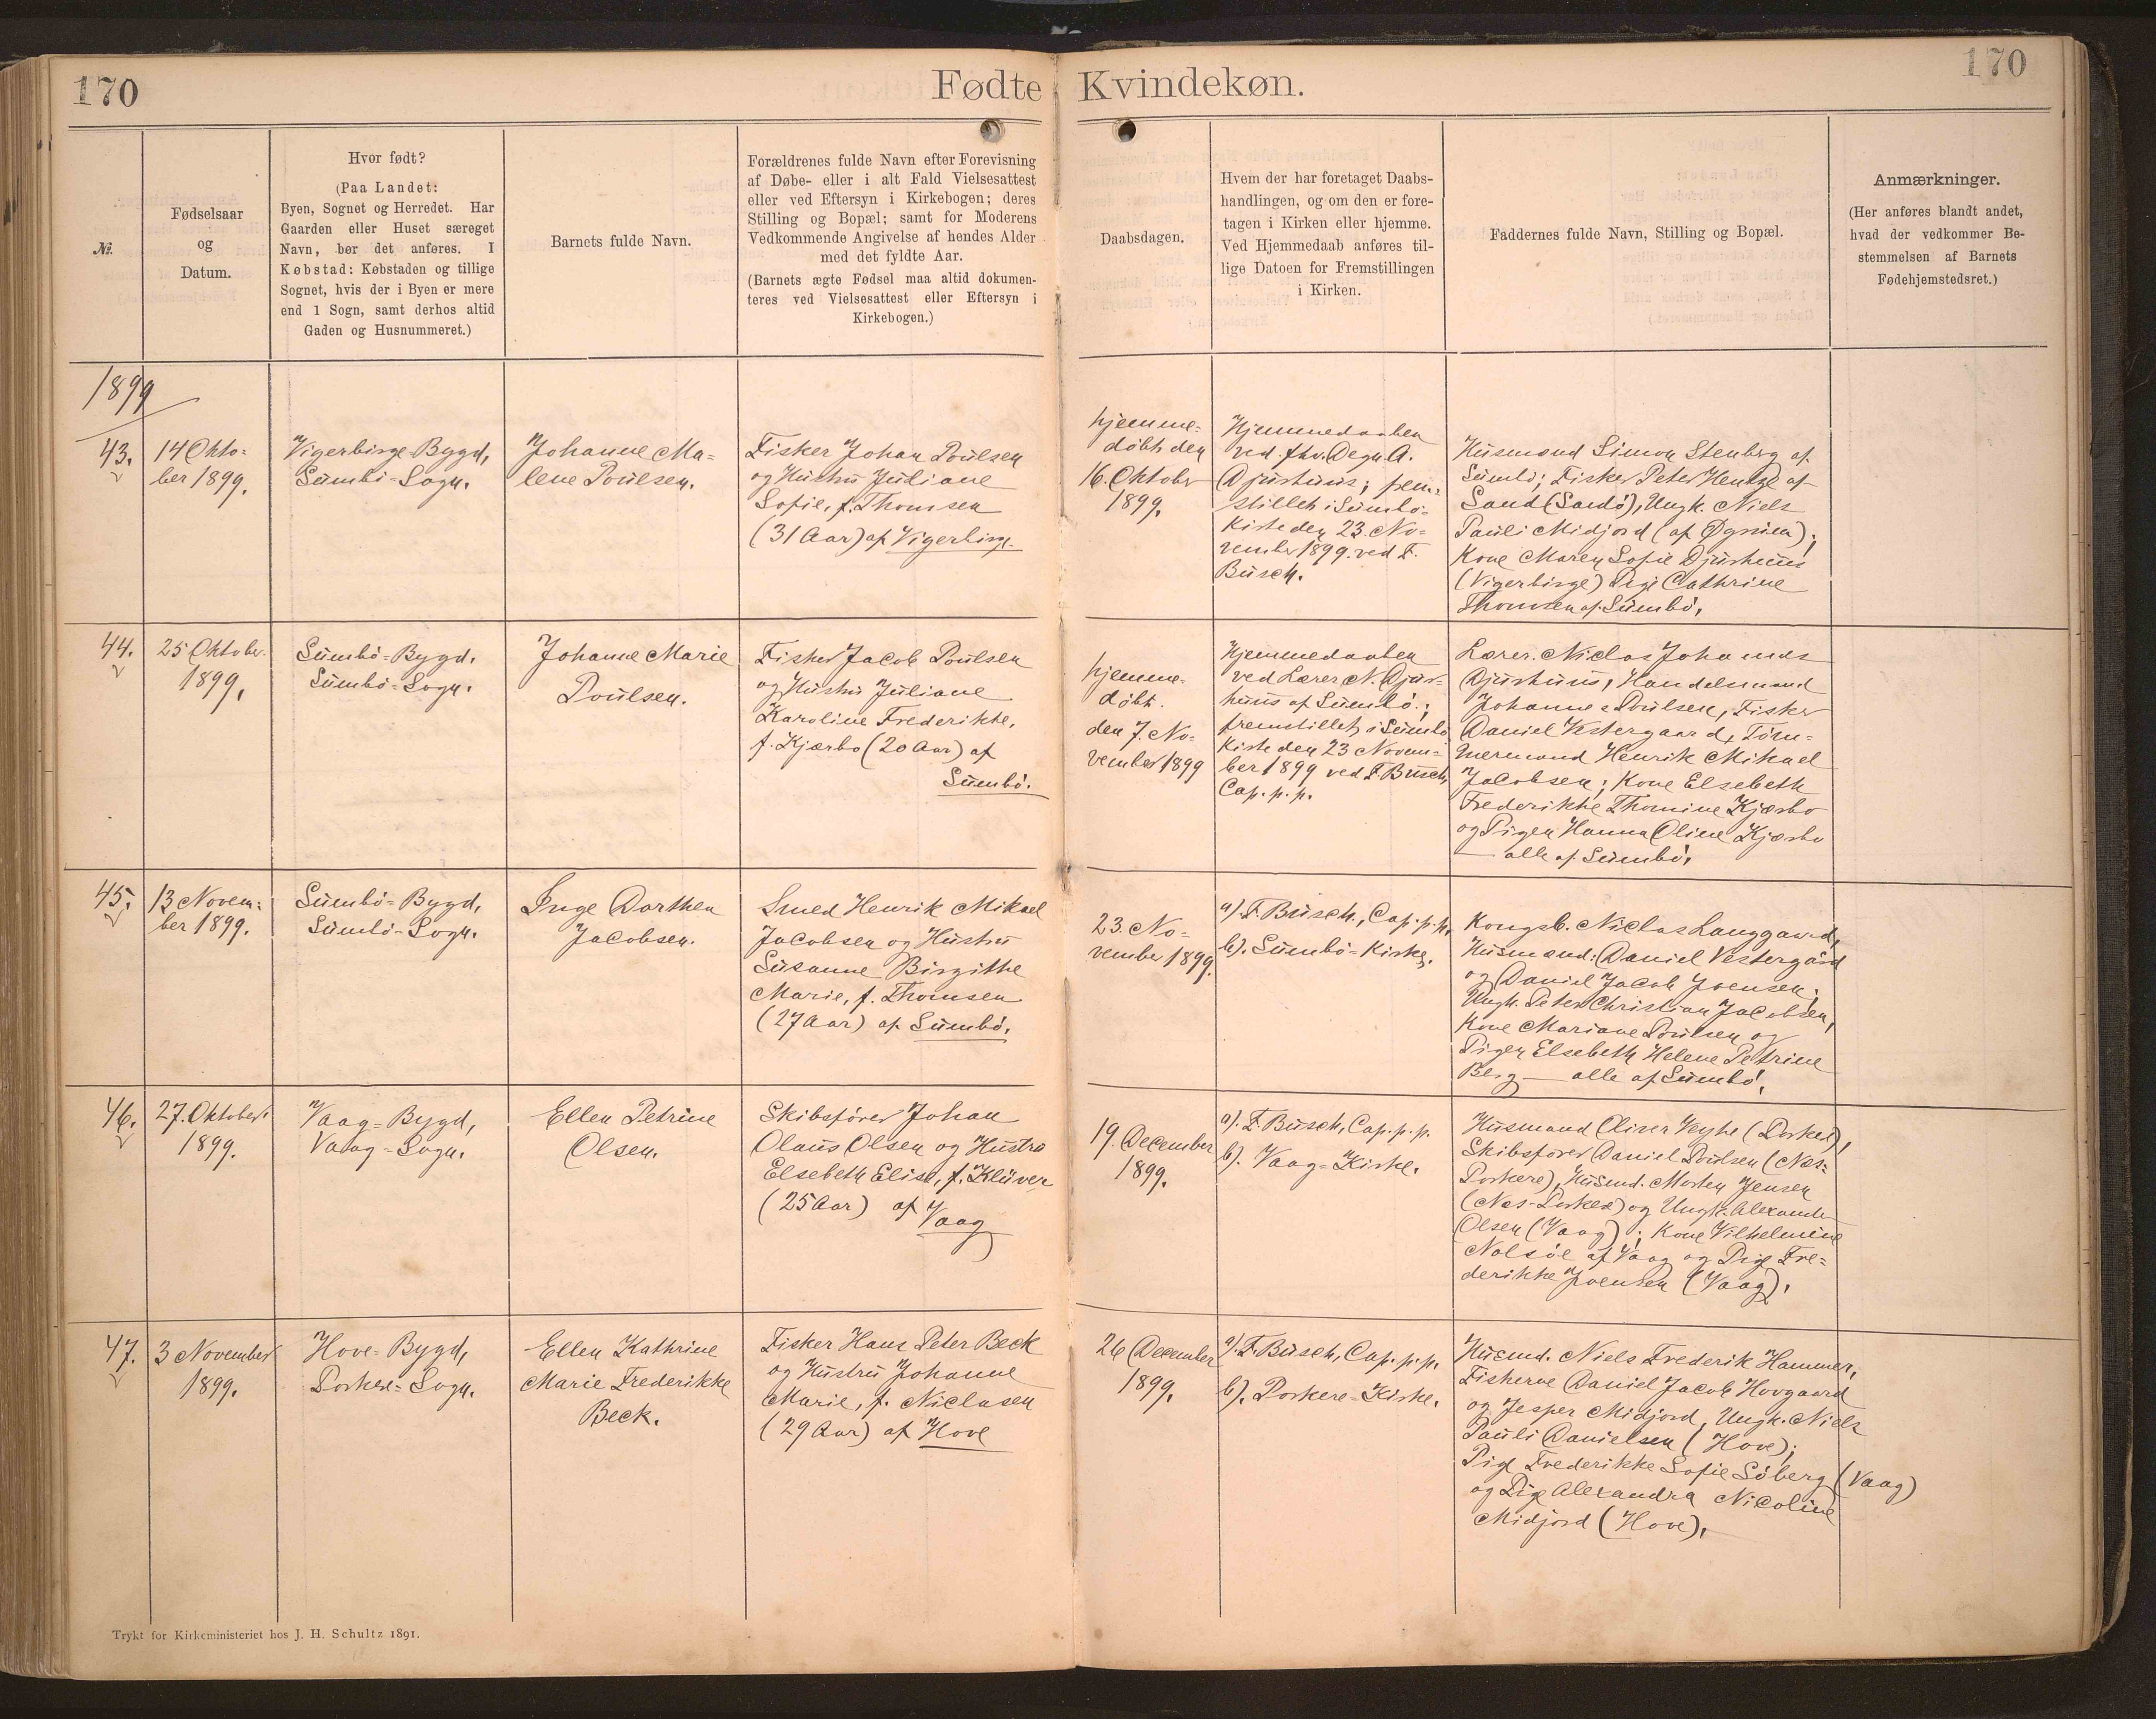 170
Fødte
Kvindekøn.
170
№.
Fødselsaar
og
Datum.
Hvor født?
(Paa Landet:
Byen, Sognet og Herredet. Har
Gaarden eller Huset særeget
Navn, bør det anføres. I
Købstad: Købstaden og tillige
Sognet, hvis der i Byen er mere
end 1 Sogn, samt derhos altid
Gaden og Husnummeret.)
Barnets fulde Navn.
Forældrenes fulde Navn efter Forevisning
af Døbe- eller i alt Fald Vielsesattest
eller ved Eftersyn i Kirkebogen; deres
Stilling og Bopæl; samt for Moderens
Vedkommende Angivelse af hendes Alder
med det fyldte Aar.
(Barnets ægte Fødsel maa altid dokumen-
teres ved Vielsesattest eller Eftersyn i
Kirkebogen.)
Daabsdagen.
Hvem der har foretaget Daabs-
handlingen, og om den er fore-
tagen i Kirken eller hjemme.
Ved Hjemmedaab anføres til-
lige Datoen for Fremstillingen
i Kirken.
Faddernes fulde Navn, Stilling og Bopæl.
Anmærkninger.
(Her anføres blandt andet,
hvad der vedkommer Be-
stemmelsen af Barnets
Fødehjemstedsret.)
1899
43.
14 Okto-
ber 1899.
Vigerbirge Bygd,
Sumbö-Sogn.
Johanne Ma-
lene Poulsen.
Fisker Johan Poulsen
og Hustru Juliane
Sofie, f. Thomsen
(31 Aar) af Vigerbirge.
hjemme-
döbt den
16. Oktober
1899.
Hjemmedaaben
ved fhv. Degn A.
Djurhuus; frem-
stillet i Sumbö-
Kirke den 23. No-
vember 1899. ved F.
Busch.
Husmand Simon Stenberg af
Sumbö; Fisker Peter Hentze af
Sand (Sandö), Ungk. Niels
Pauli Midjord (af );
Kone Maren Sofie Djurhuus
(Vigerbirge) Pige Cathrine
Thomsen af Sumbö.
44.
25 Oktober
1899.
Sumbö-Bygd.
Sumbö-Sogn.
Johanne Marie
Poulsen.
Fisker Jacob Poulsen
og Hustru Juliane
Karoline Frederikke,
f. Kjærbo (20 Aar) af
Sumbö.
hjemme-
döbt.
den 7. No-
vember 1899
Hjemmedaaben
ved Lærer N. Djur-
huus af Sumbö;
fremstillet i Sumbö
Kirke den 23 Novem-
ber 1899 ved F. Busch,
Cap. p. p.
Lærer. Niclas Johannes
Djurhuus, Handelsmand
Johannes Poulsen, Fisker
Daniel Vestergaard, Töm-
mermand Henrik Mikael
Jacobsen; Kone Elsebeth
Frederikke Thomine Kjærbo
og Pigen Hanna Oline Kjærbo
— alle af Sumbö.
45.
13 Novem-
ber 1899.
Sumbö-Bygd,
Sumbö-Sogn.
Inge Dorthea
Jacobsen.
Smed Henrik Mikael
Jacobsen og Hustru
Susanne Birgithe
Marie, f. Thomsen
(27 Aar) af Sumbö.
23. No-
vember 1899.
a). F. Busch., Cap. p. p.
b). Sumbö-Kirke.
Kongsb. Niclas Langgaard,
Husmænd: Daniel Vestergård
og Daniel Jacob Joensen;
Ungk. Peter Christian Jacobsen,
Kone Mariane Poulsen og
Pigen Elsebeth Helene Petrine
Berg — alle af Sumbö.
46.
27. Oktober
1899.
Vaag-Bygd,
Vaag-Sogn.
Ellen Petrine
Olsen.
Skibsförer Johan
Olaus Olsen og Hustru
Elsebeth Elise, f. Klüver
(25 Aar) af Vaag
19. December
1899.
a). F. Busch, Cap. p. p.
b). Vaag-Kirke.
Husmand Oliver Veyhe (Porkere),
Skibsförer Daniel Poulsen (Næs-
Porkere), Husmd. Morten Jensen
(Næs-Porkere) og Ungk. Alexander
Olsen (Vaag); Kone Vilhelmine
Nolsöe af Vaag og Pige Fre-
derikke Joensen (Vaag).
47.
3 November
1899.
Hove-Bygd,
Porkere-Sogn.
Ellen Kathrine
Marie Frederikke
Beck.
Fisker Hans Peter Beck
og Hustru Johanne
Marie, f. Niclasen
(29 Aar) af Hove
26 December
1899.
a). F. Busch, Cap. p. p.
b). Porkere-Kirke.
Husmd. Niels Frederik Hammer,
Fiskerne Daniel Jacob Hovgaard
og Jesper Midjord, Ungk. Niels
Pauli Danielsen (Hove);
Pige Frederikke Sofie Söberg (Vaag)
og Pige Alexandra Nicoline
Midjord (Hove).
Trykt for Kirkeministeriet hos J. H. Schultz 1891.